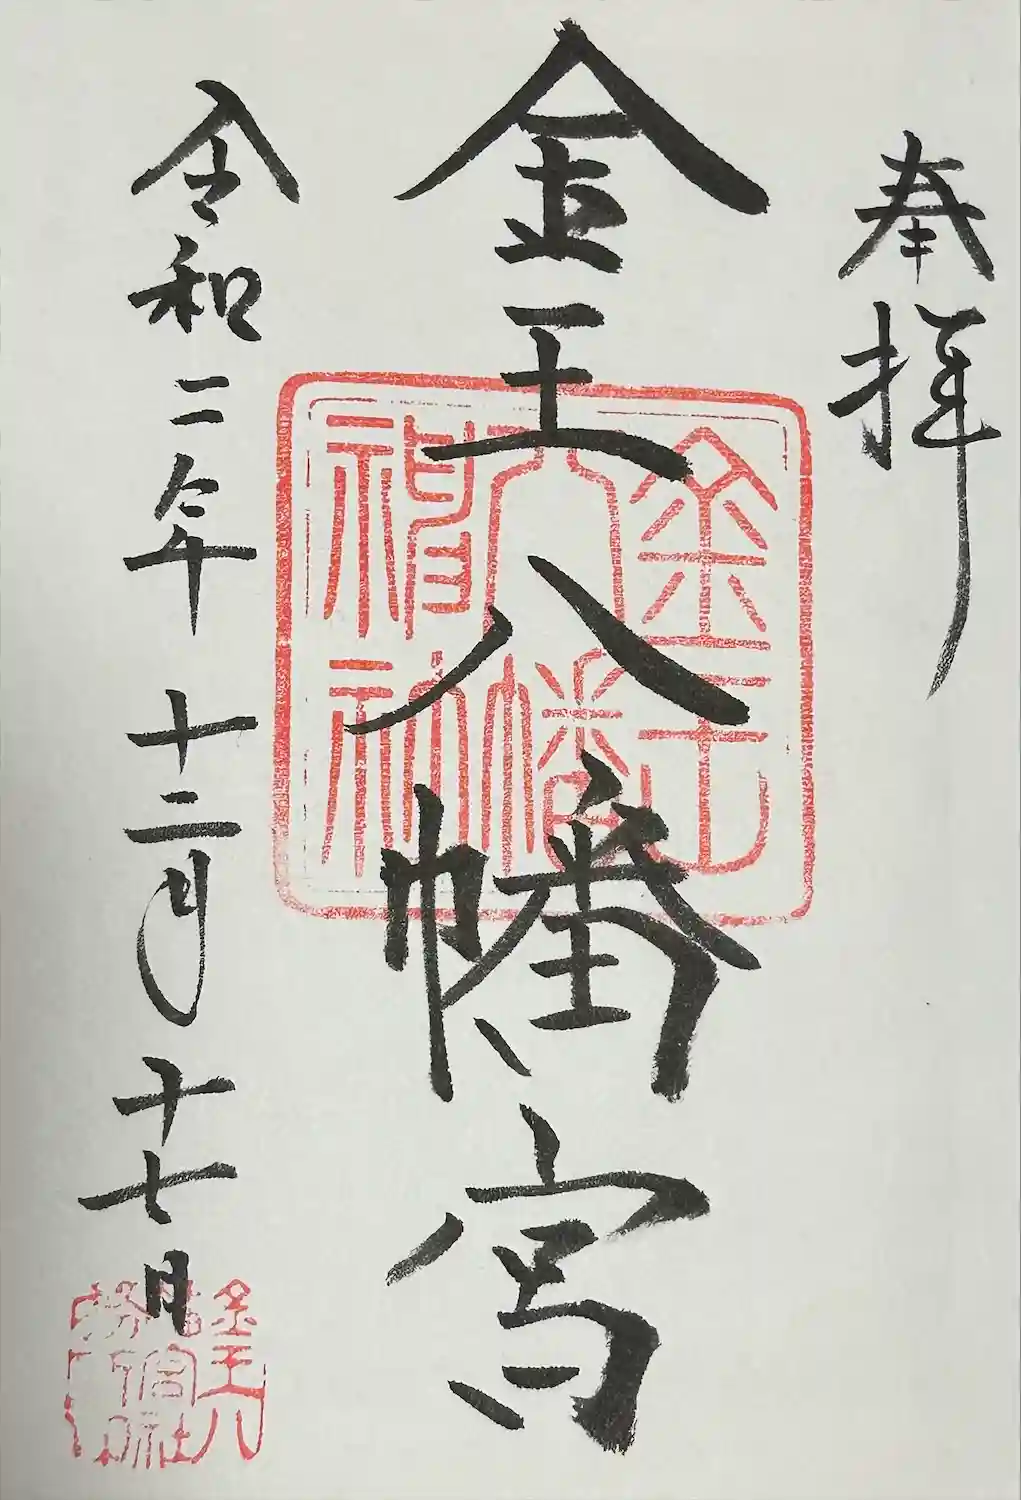 奉拝
金王八幡宮
令和二年 十二月 十七日
金王八幡神社
金王八幡宮社務所印